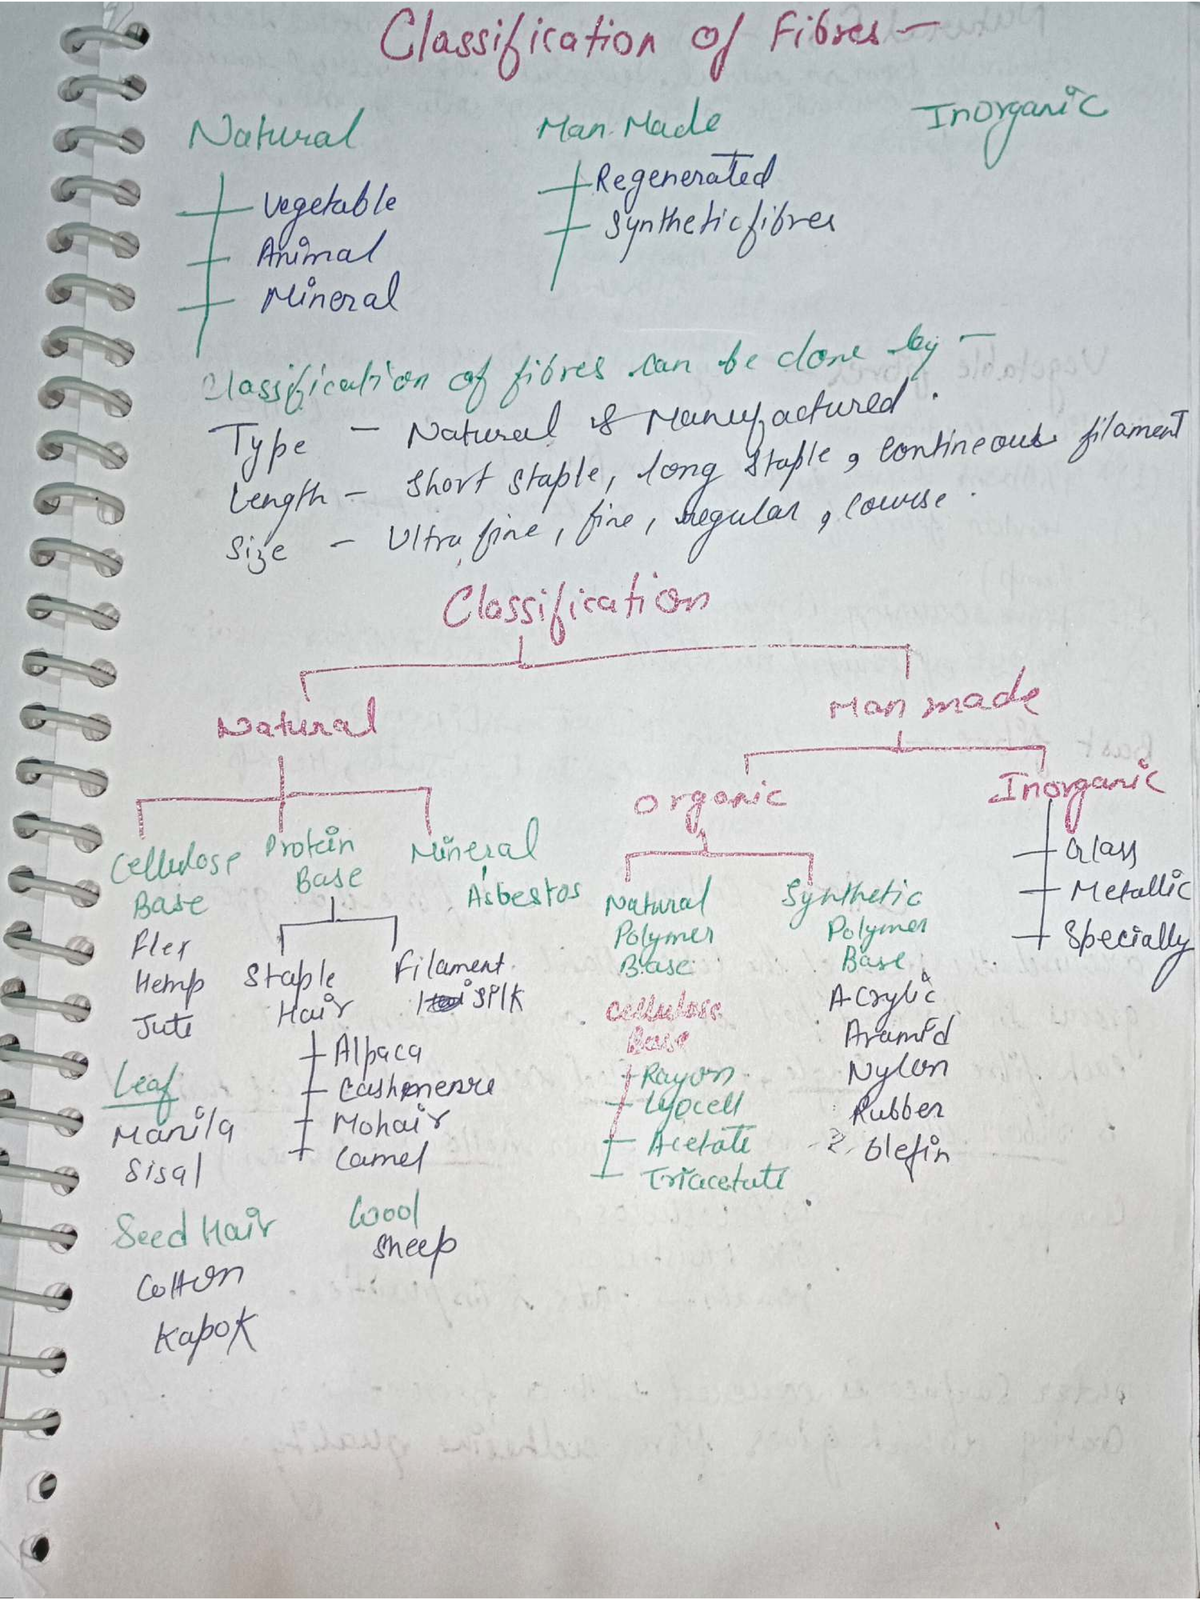 Classification of Fibres –
Natural
Vegetable
Animal
Mineral
Man-Made
Regenerated
Synthetic fibres
Inorganic
Classification of fibres can be done by –
Type – Natural & Manufactured.
Length – Short staple, long staple, contineous filament
Size – Ultra fine, fine, regular, course.
Classification
Natural
Man made
Organic
Inorganic
Glass
Metallic
Specially
Cellulose
Base
Flex
Hemp
Jute
Leaf
Manila
Sisal
Seed Hair
Cotton
Kapok
Protein
Base
Staple
Hair
Alpaca
Cashmenre
Mohair
Camel
Wool
Sheep
Filament.
SPlk
Mineral
Asbestos
Natural
Polymer
Base
Cellulose
Base
Rayon
Lyocell
Acetate
Triacetate
Synthetic
Polymer
Base
Acrylic
Aramid
Nylon
Rubber
Olefin